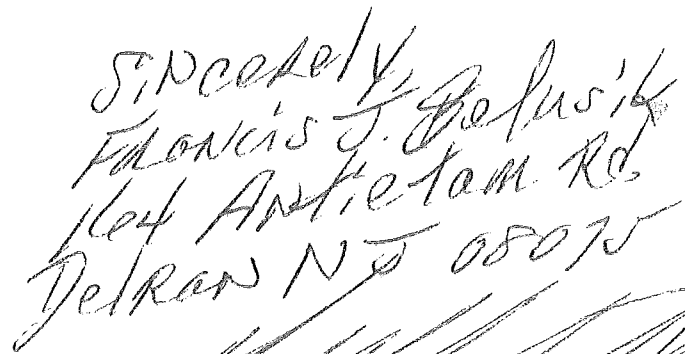 Sincerely,
Francis J. Belusik
164 Antietam Rd
Delran NJ 08075